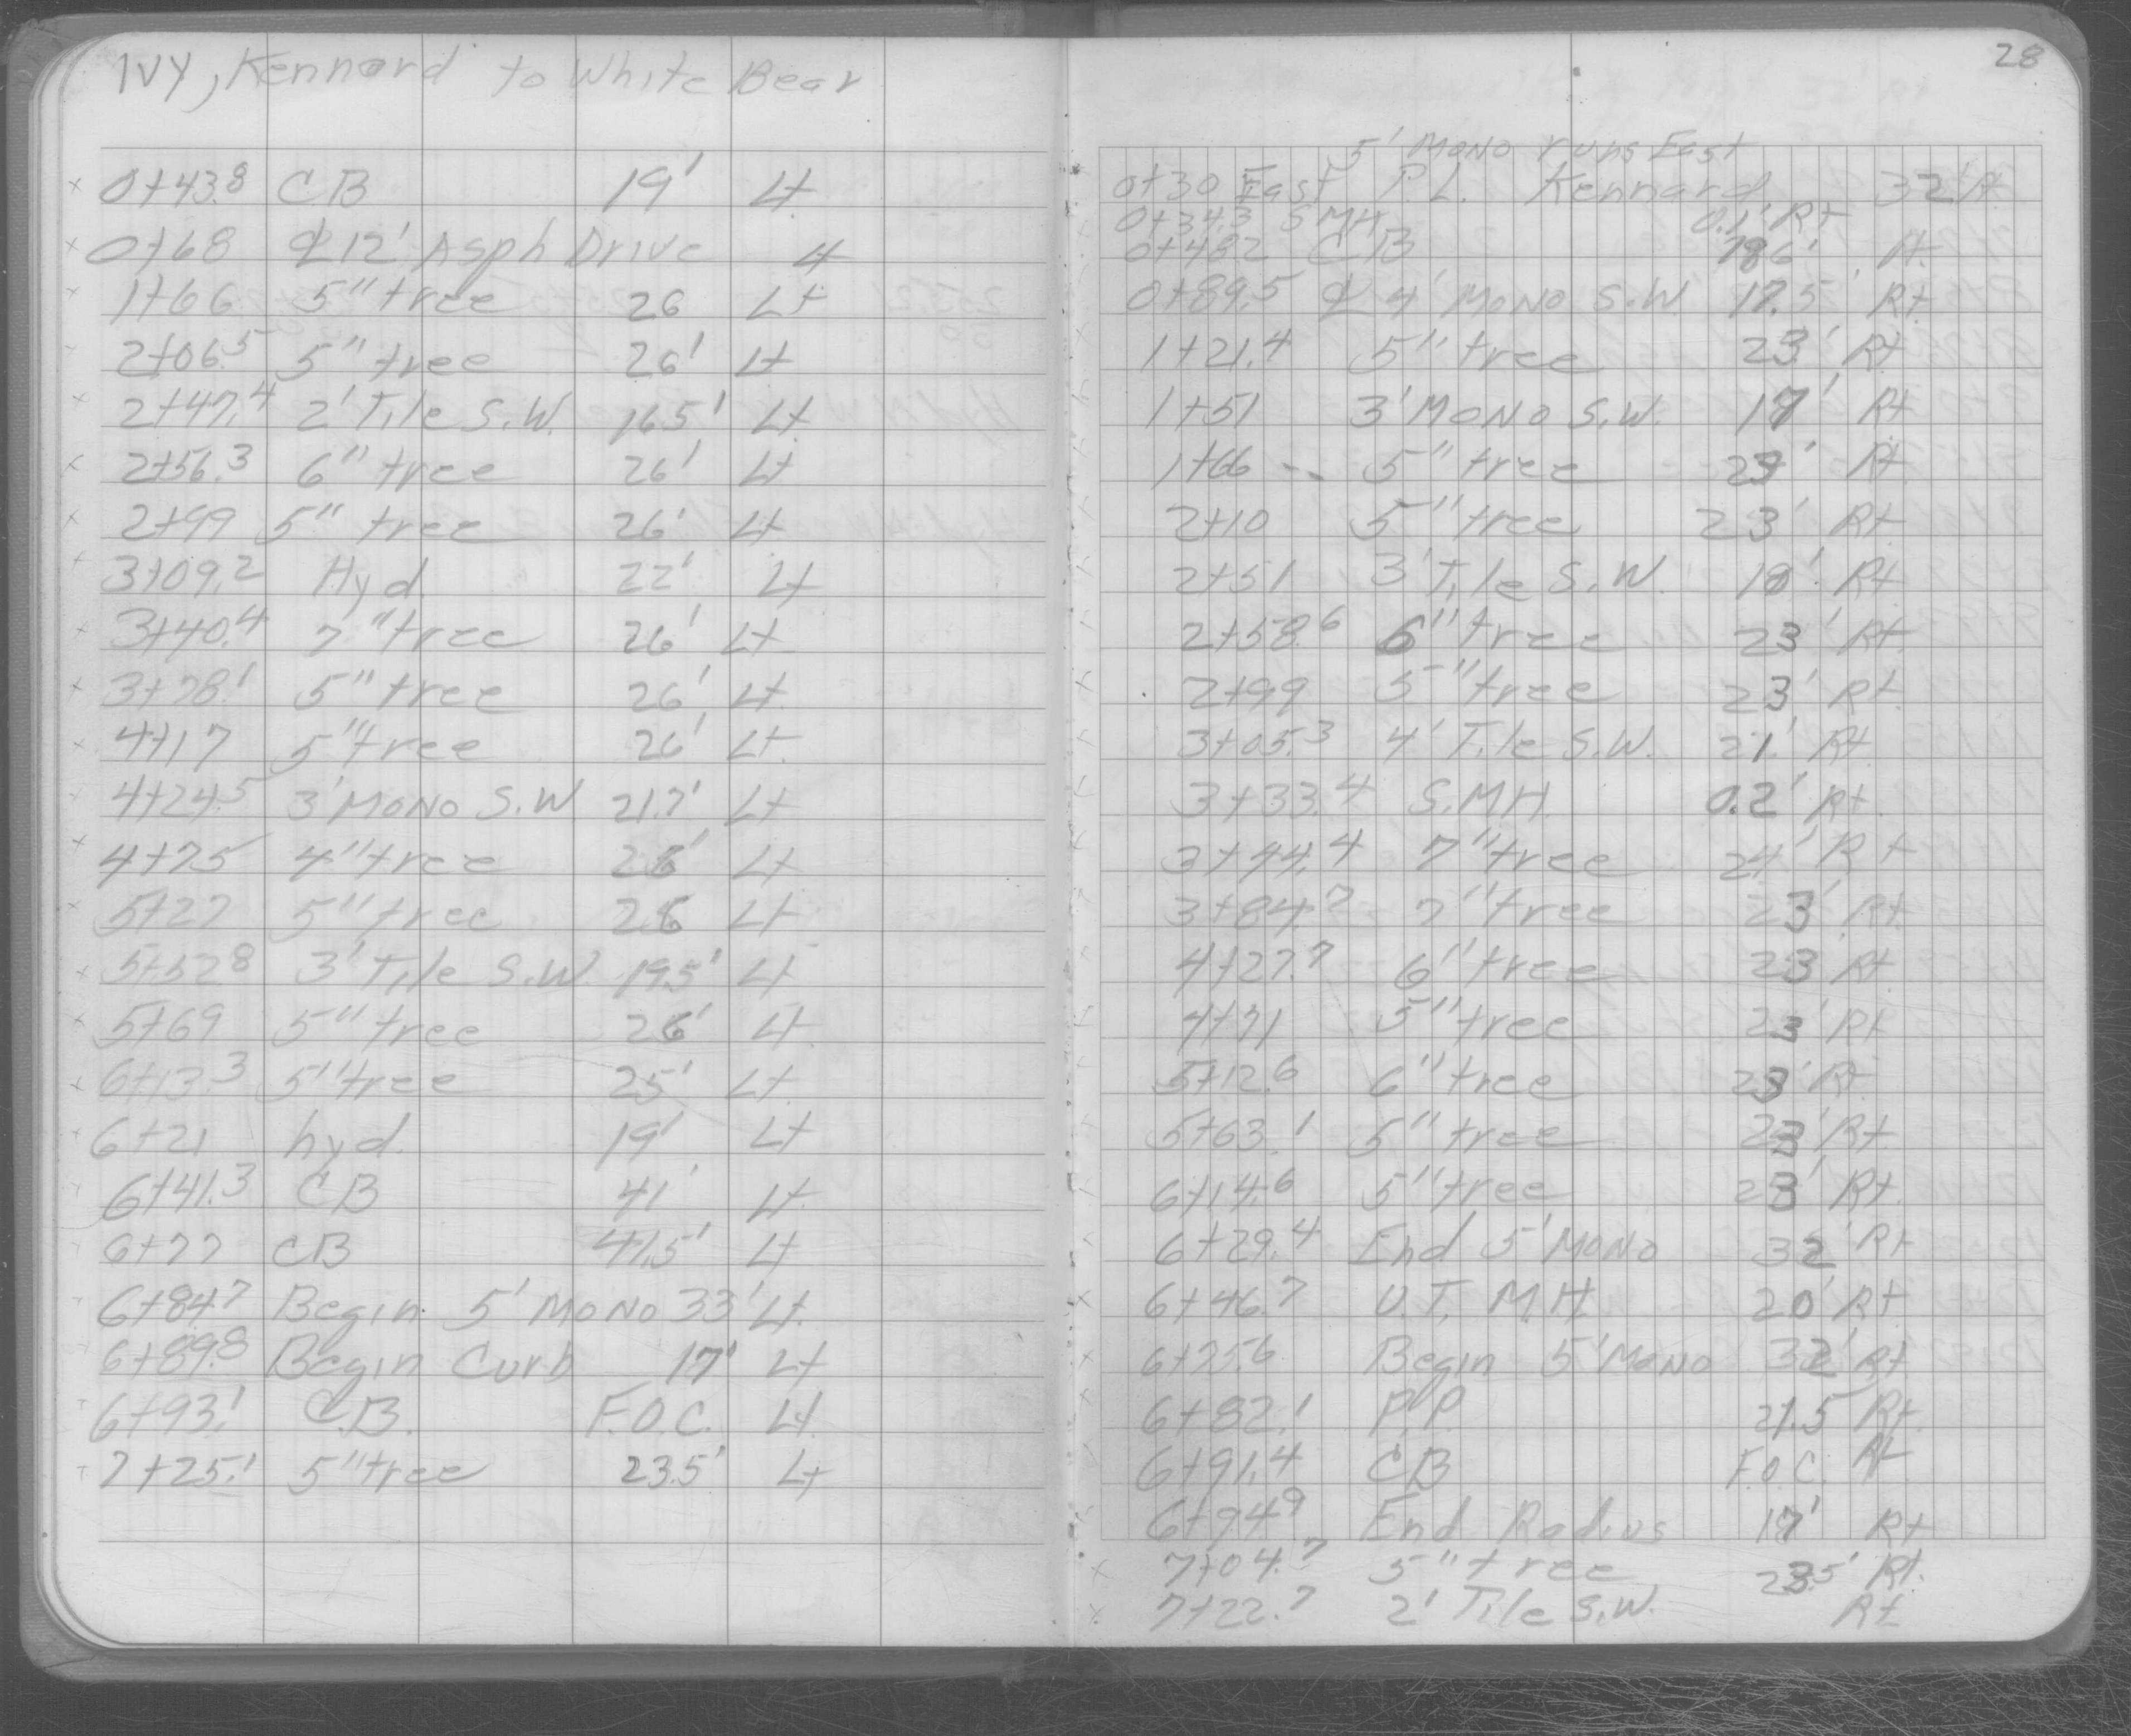 Ivy, Kennard to White Bear
0+43.8 CB 19' Lt
0+68 ℄ 12' Asph Drive Lt
1+66 5" tree 26 Lt
2+06.5 5" tree 26' Lt
2+47.4 2' Tile S.W. 16.5' Lt
2+56.3 6" tree 26' Lt
2+99 5" tree 26' Lt
3+09.2 Hyd. 22' Lt
3+40.4 7" tree 26' Lt
3+78.1 5" tree 26' Lt
4+17 5" tree 26' Lt
4+24.5 3' MONO S.W 21.7' Lt
4+75 4" tree 26' Lt
5+27 5" tree 26 Lt
5+52.8 3' Tile S.W. 19.5' Lt
5+69 5" tree 26' Lt
6+13.3 5" tree 25' Lt
6+21 hyd. 19' Lt
6+41.3 CB 41' Lt
6+77 CB 41.5' Lt
6+84.7 Begin 5' MONO 33' Lt.
6+89.8 Begin Curb 17' Lt
6+93.1 C.B. F.O.C. Lt
7+25.1 5" tree 23.5' Lt
28
5' MONO runs East
0+30 East P.L. Kennard 32' Rt
0+34.3 SMH 0.1' Rt
0+48.2 CB 18.6' Rt
0+89.5 ℄ 4' MONO S.W. 17.5' Rt
1+21.4 5" tree 23' Rt
1+51 3' MONO S.W. 17' Rt
1+66 -- 5" tree 23' Rt
2+10 5" tree 23' Rt
2+51 3' Tile S.W. 18' Rt
2+58.6 6" tree 23' Rt
2+99 5" tree 23' Rt
3+05.3 4' Tile S.W. 21' Rt
3+33.4 S.MH. 0.2' Rt
3+44.4 7" tree 24' Rt
3+84.7 7" tree 23' Rt
4+27.7 6" tree 23' Rt
4+71 5" tree 23' Rt
5+12.6 6" tree 23' Rt
5+63.1 5" tree 23' Rt
6+14.6 5" tree 23' Rt
6+29.4 End 5' MONO 32' Rt
6+46.7 U.T. M.H. 20' Rt
6+75.6 Begin 5' MONO 32' Rt
6+82.1 P.P. 21.5' Rt
6+91.4 CB F.O.C. Rt
6+94.9 End Radius 17' Rt
7+04.7 5" tree 23.5' Rt.
7+22.7 2' Tile S.W. Rt